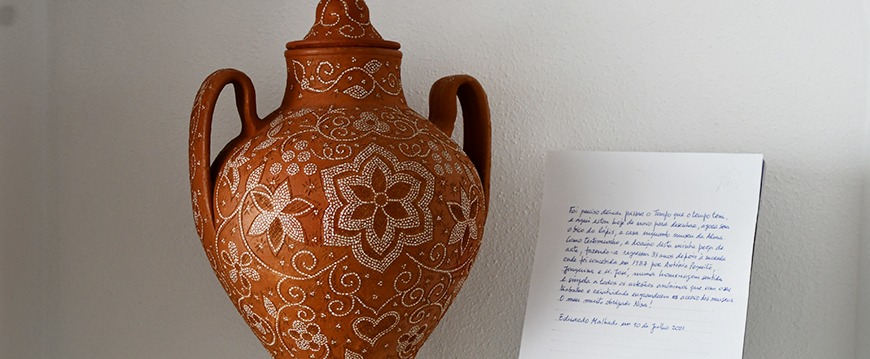 Foi preciso deixar passar o Tempo que o tempo tem,
e aqui estou hoje de novo para desenhar, agora com
o bico do lápis, a casa enquanto museu da Alma
como testemunho, a doação desta minha peça de
arte, fazendo-a regressar 33 anos depois à morada
onde foi concebida em 1987 por António Pequito,
Joaquina e S. José, numa homenagem sentida
e singela a todos os artesãos anónimos que com o seu
trabalho e criatividade engrandecem os acervos dos museus
O meu muito obrigado Nisa!
Eduardo Malhado em 10 de Julho 2021